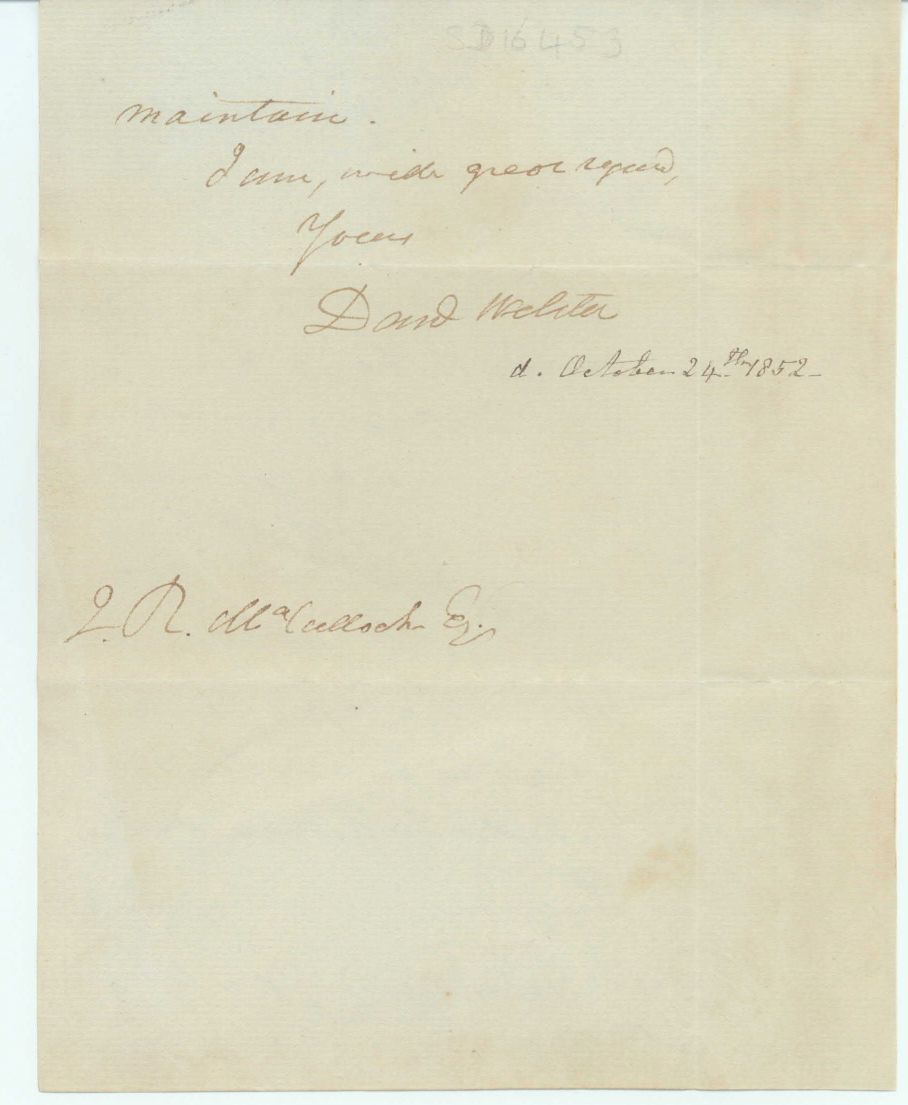 SD16453
maintain.
I am, with great regard,
Yours
Danl Webster
d. October 24th 1852
J. R. McCulloch Esq.